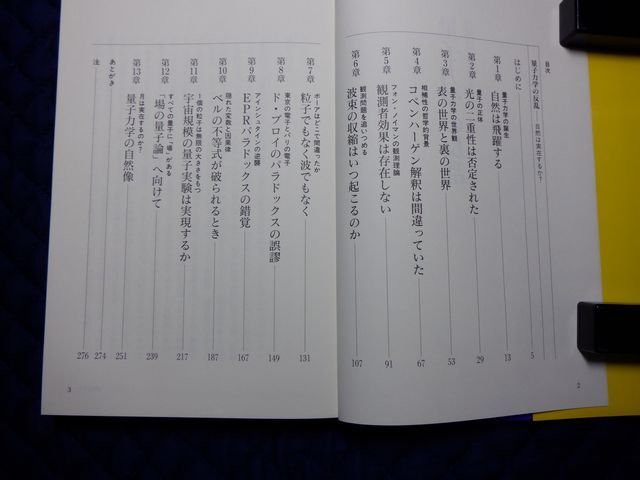 目次
量子力学の反乱 自然は実在するか?
はじめに 5
第1章 量子力学の誕生
自然は飛躍する 13
第2章 量子の正体
光の二重性は否定された 29
第3章 量子力学の世界観
表の世界と裏の世界 53
第4章 相補性の哲学的背景
コペンハーゲン解釈は間違っていた 67
第5章 フォン・ノイマンの観測理論
観測者効果は存在しない 91
第6章 観測問題を追いつめる
波束の収縮はいつ起こるのか 107
2
第7章 ボーアはどこで間違ったか
粒子でもなく波でもなく 131
第8章 東京の電子とパリの電子
ド・ブロイのパラドックスの誤謬 149
第9章 アインシュタインの逆襲
EPRパラドックスの錯覚 167
第10章 隠れた変数と因果律
ベルの不等式が破られるとき 187
第11章 1個の粒子は無限の大きさをもつ
宇宙規模の量子実験は実現するか 217
第12章 すべての量子に「場」がある
「場の量子論」へ向けて 239
第13章 月は実在するのか?
量子力学の自然像 251
あとがき 274
注 276
3